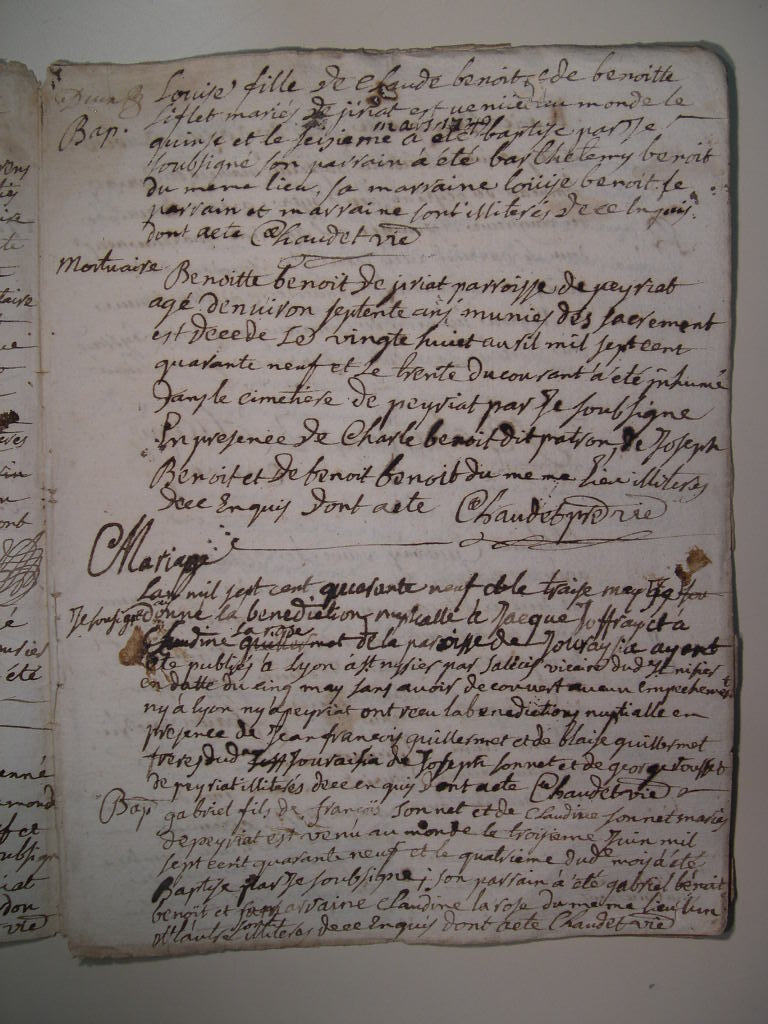 Louise fille de Claude benoit et de benoitte
Liflet mariés de jiriat est venue au monde le
mars 1749
Bap. quinse et le seisieme a été baptise par Je
soubsigné son parrain à été barthelemy benoit
du meme lieu, sa marraine louise benoit. le
parrain et marraine sont illiterés de ce Enquis.
dont acte Chaudet vic
Mortuaire Benoitte benoit de jriat parroisse de peyriat
agé denviron septente ans munies des sacrement
est decede Le vingte huict auril mil sept cent
quarante neuf et le trente du courant à été inhumé
dans le cimetiere de peyriat par Je soubsigne
En presence de Charle benoit dit patron, de Joseph
Benoit et de benoit benoit du meme lieu illiterés
de ce Enquis dont acte Chaudet pre vic
Mariage
Lan mil sept cent quarante neuf et le traise may
Je soubsigné donné la benediction nuptialle a Jacque Joffray et à
Claudine de la paroisse de Jouraisia ayent
été publiés a Lyon
en datte du cinq may sans avoir decouvert aucun Empechement
ny à lyon ny à peyriat ont receu la benediction nuptialle en
presence de Jean francois guillermet et de blaise guillermet
freres dud Jouraisia de Joseph sonnet et de george rousset
de peyriat illiterés de ce enquis dont acte Chaudet vic
Bap gabriel fils de françois Sonnet et de Claudine sonnet mariés
de peyriat est venu au monde le troisieme Juin mil
sept cent quarante neuf et le quatrieme dud mois à été
Baptise par Je soubsigne; son parrain à été gabriel benoit
benoit et sa marraine Claudine la rose du meme lieu lun
et lautre sont illiterés de ce Enquis dont acte Chaudet vic